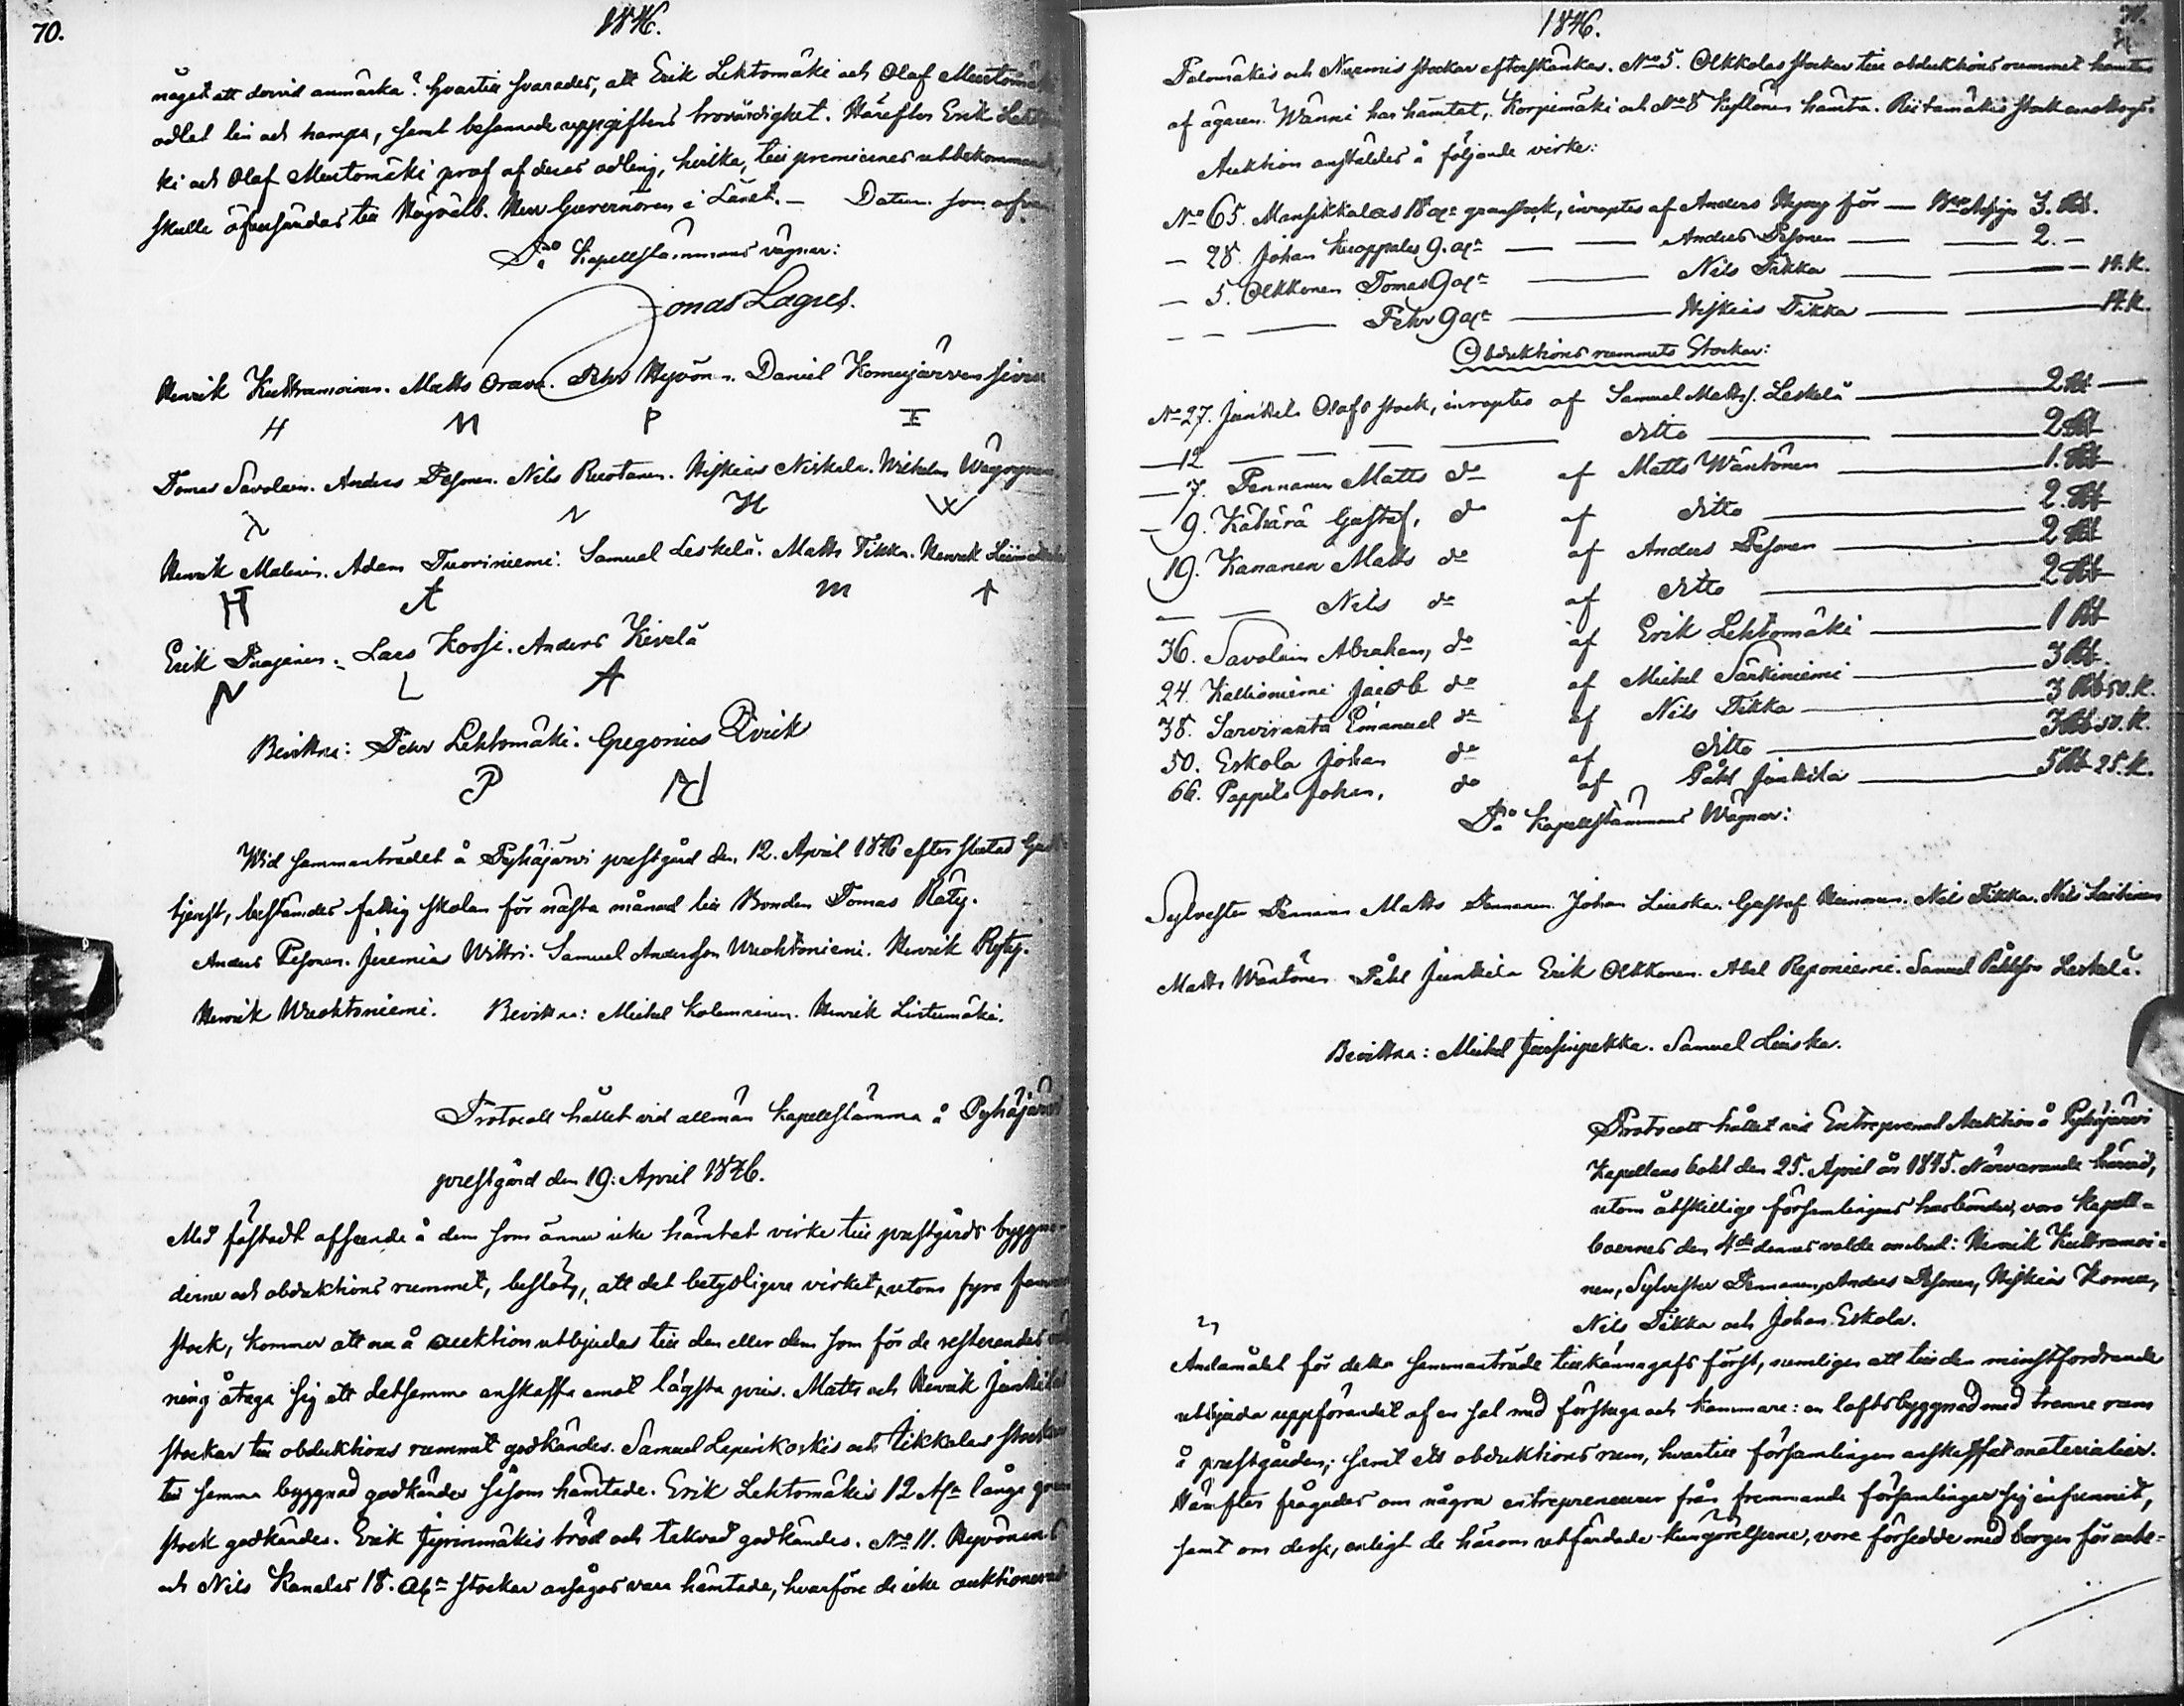 70.
1846.
något att dervid anmärka? Hvartill svarades, att Erik Lehtomäki och Olaf Murtomäki
odlat lin och hampa, samt besannade uppgiftens trovärdighet. Härefter Erik
ki och Olaf Murtomäki prof af deras odling, hvilka, till premiernes utbekommande,
skulle öfversändas till Högvälb. Herr Guvernören i Länet. — Datum som
På Kapellstämmans vägnar:
Jonas Lagus.
Henrik Kuldramoinen. Matts Orava. Petter Hyvön. Daniel Komujärven
H M P
Tomas Savolain. Anders Pesonen. Nils Ruotanen. Hiskias Niskala. Wilhelm
N H W
Henrik Malinen. Adam Tuoriniemi. Samuel Leskelä. Matts Tikka. Henrik
H A m +
Erik Paajanen. Lars Koosi. Anders Kivelä
N L A
Bevittna: Petter Lehtomäki. Gregorius Qvick
P
Wid sammanträdet å Pyhäjärvi prestgård den 12. April 1846 efter slutad
tjenst, bestämdes fattig skolan för nästa månad till Bonden Tomas Räty.
Anders Pesonen. Jeremias Wittri. Samuel Andersson Wuohtoniemi. Henrik Ryty.
Henrik Wuohtoniemi. Bevittna: Michel Kolemainen. Henrik Lintumäki.
Protocoll hållet vid allmän Kapellstämma å Pyhäjärvi
prestgård den 19. April 1846.
Med fästadt afseende å dem som ännu icke hämtat virke till prestgårds byggna-
derne och obduktions rummet, beslöts, att det betydligere virket, utom fyra
stock, kommer att nu å auktion utbjudas till den eller dem som för de resterandes
ning åtaga sig att detsamma anskaffa emot lägsta pris. Matts och Henrik Junkilas
stockar till obduktions rummet godkändes. Samuel Lepinkoskis och Tikkalas stockar
till samma byggnad godkändes såsom hämtade. Erik Lehtomäkis 12 Al. långa
stock godkändes. Erik Jyrinmäkis bröd och takved godkändes. No 11. Hyvönen
och Nils Kanalas 18. al. stockar ansågos vara hämtade, hvarföre de icke auktionerades
1846.
71.
Palomäkis och Nurmis stockar efterskänkas. No 5. Olkkolas stockar till obduktions rummet hämtas
af ägaren. Wänni har hämtat, Korpimäki och No 8 hämta.
Auktion anställdes å följande virke:
No 65. Mansikkalas 18 al. granstock, inroptes af Anders för — 3. Rb.
— 28. Johan Knoppales 9. al. — Anders Pesonen — 2. —
— 5. Olkkonen Tomas 9 al. — Nils Tikka — 14. K.
— — Petter 9 al. — Hiskias Tikka — 14. K.
Obduktions rummets Stockar:
No 27. Junkila Olofs stock, inroptes af Samuel Matts. Leskelä — 2 Rb —
— 12 — — — ditto — 2 Rb
— 7. Pennanen Matts do af Matts Wäntönen — 1. Rb
— 9. Kähärä Gustaf, do af ditto — 2. Rb
19. Kananen Matts do af Anders Pesonen — 2 Rb
— — Nils do af ditto — 2 Rb
36. Savolain Abraham, do af Erik Lehtomäki — 1 Rb
24. Kallioniemi Jacob do af Michel Särkiniemi — 3 Rb.
38. Sarviranta Emanuel do af Nils Tikka — 3 Rb 50. K.
50. Eskola Johan do af ditto — 3 Rb 50. K.
66. Pappila Johan, do af Påhl Junkila — 5 Rb 25. K.
På Kapellstämmans Wägnar:
Sylvester Pennanen Matts Pennanen. Johan Liuska. Gustaf Heinonen. Nils Tikka. Nils
Matts Wäntönen Påhl Junkila Erik Olkkonen. Abel Reponiemi. Samuel Påhlsson Leskelä.
Bevittna: Michel Jussinpekka. Samuel Liuska.
Protocoll hållet vid Entreprenad Auktion å Pyhäjärvi
Kapellans bohl den 25. April år 1845. Närvarande härvid,
utom åtskillige församlingens husbönder, voro Kapell-
boernes den 4de dennes valde ombud: Henrik Kuldramoi-
nen, Sylvester Pennanen, Anders Pesonen, Hiskias Komu,
Nils Tikka och Johan Eskola.
Ändamålet för detta sammanträde tillkännagafs först, nemligen att till den minstfordrande
utbjuda uppförandet af en sal med förstuga och kammare: en loftsbyggnad med trenne rum
å prestgården; samt ett obduktions rum, hvartill församlingen anskaffat materialier.
Härefter frågades om några entrepreneurer från fremmande församlingar sig infunnit,
samt om desse, enligt de härom utfärdade kungörelserne, vore försedde med borgen för arbe-